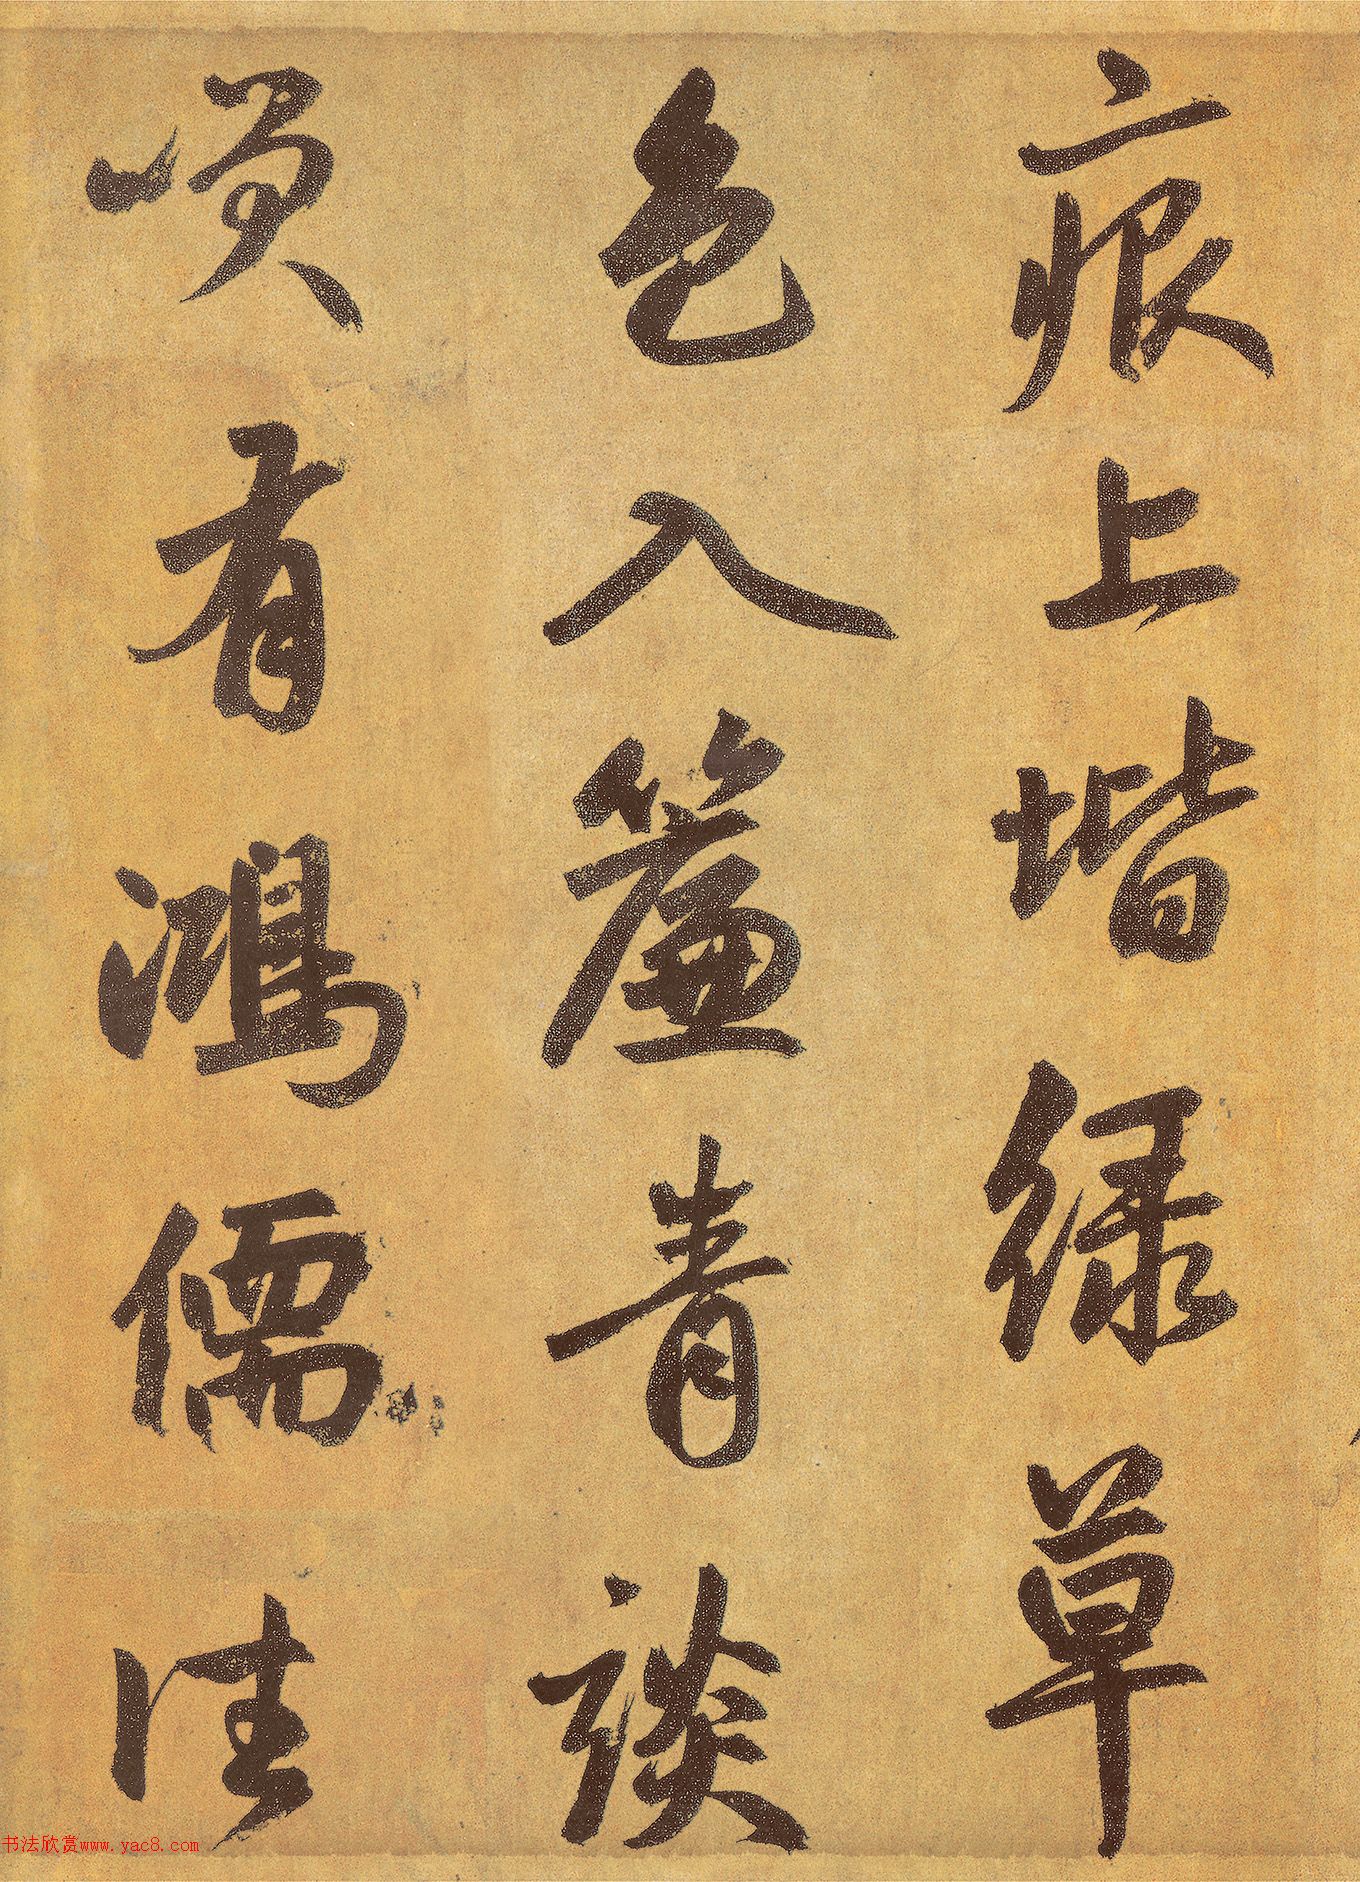 痕上堦绿草
色入簾青談
咲有鴻儒往
书法欣赏www.yac8.com